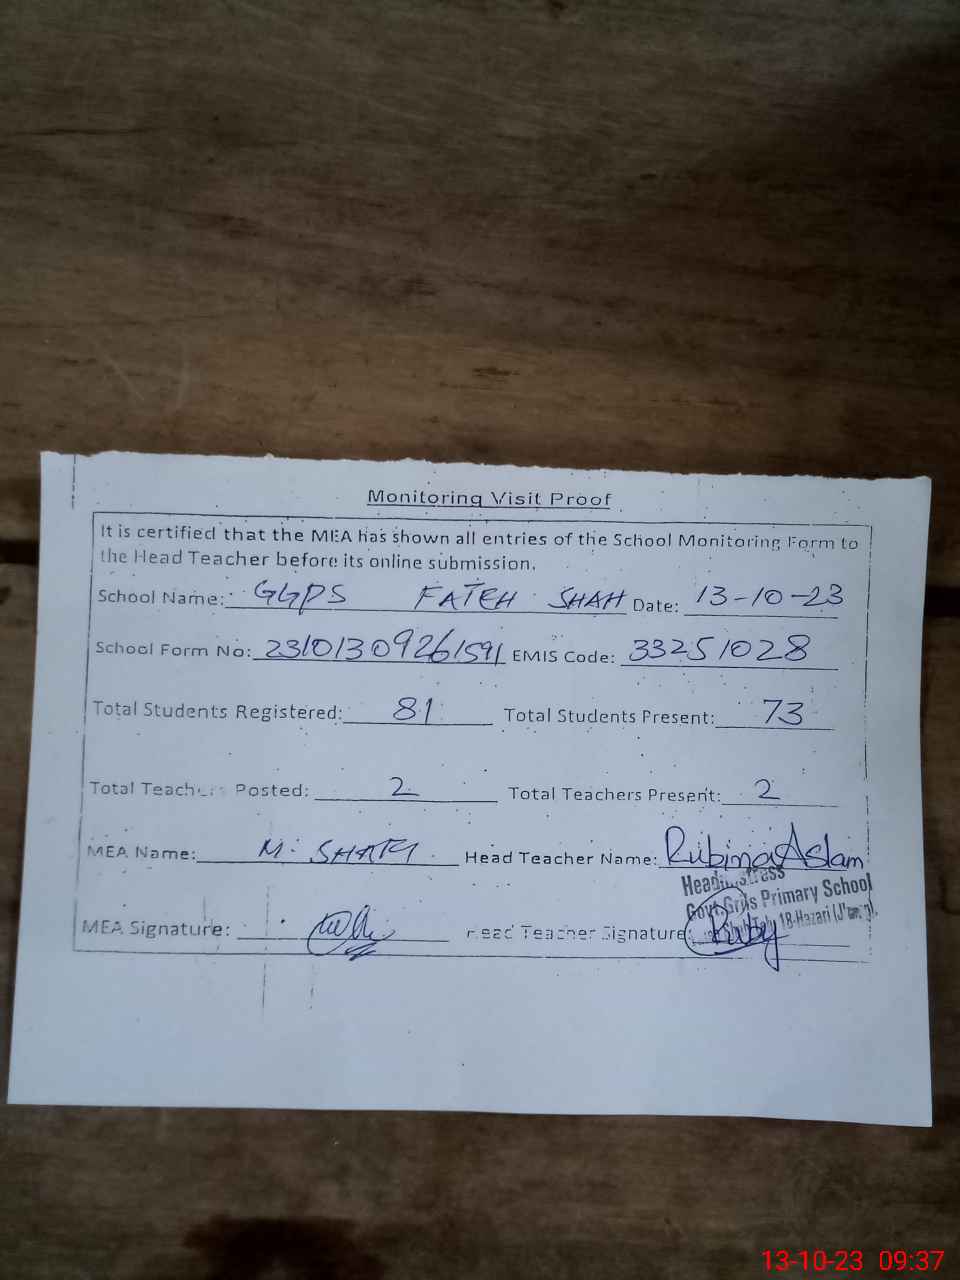 Monitoring Visit Proof
It is certified that the MEA has shown all entries of the School Monitoring Form to
the Head Teacher before its online submission.
School Name: GGPS FATEH SHAH Date: 13-10-23
School Form No: 23101309261591 EMIS Code: 33251028
Total Students Registered: 81 Total Students Present: 73
Total Teachers Posted: 2 Total Teachers Present: 2
MEA Name: M. Head Teacher Name: Rubina Aslam
Headmistress
Govt. Girls Primary School
18-Hazari
MEA Signature: Head Teacher Signature: Ruby
13-10-23 09:37